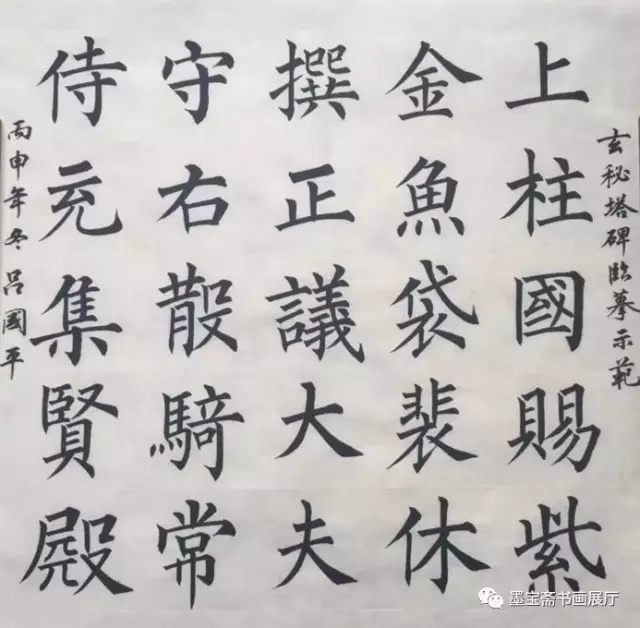 玄秘塔碑臨摹示範
上柱國賜紫
金魚袋裴休
撰正議大夫
守右散騎常
侍充集賢殿
丙申年冬吕國平
墨宝斋书画展厅